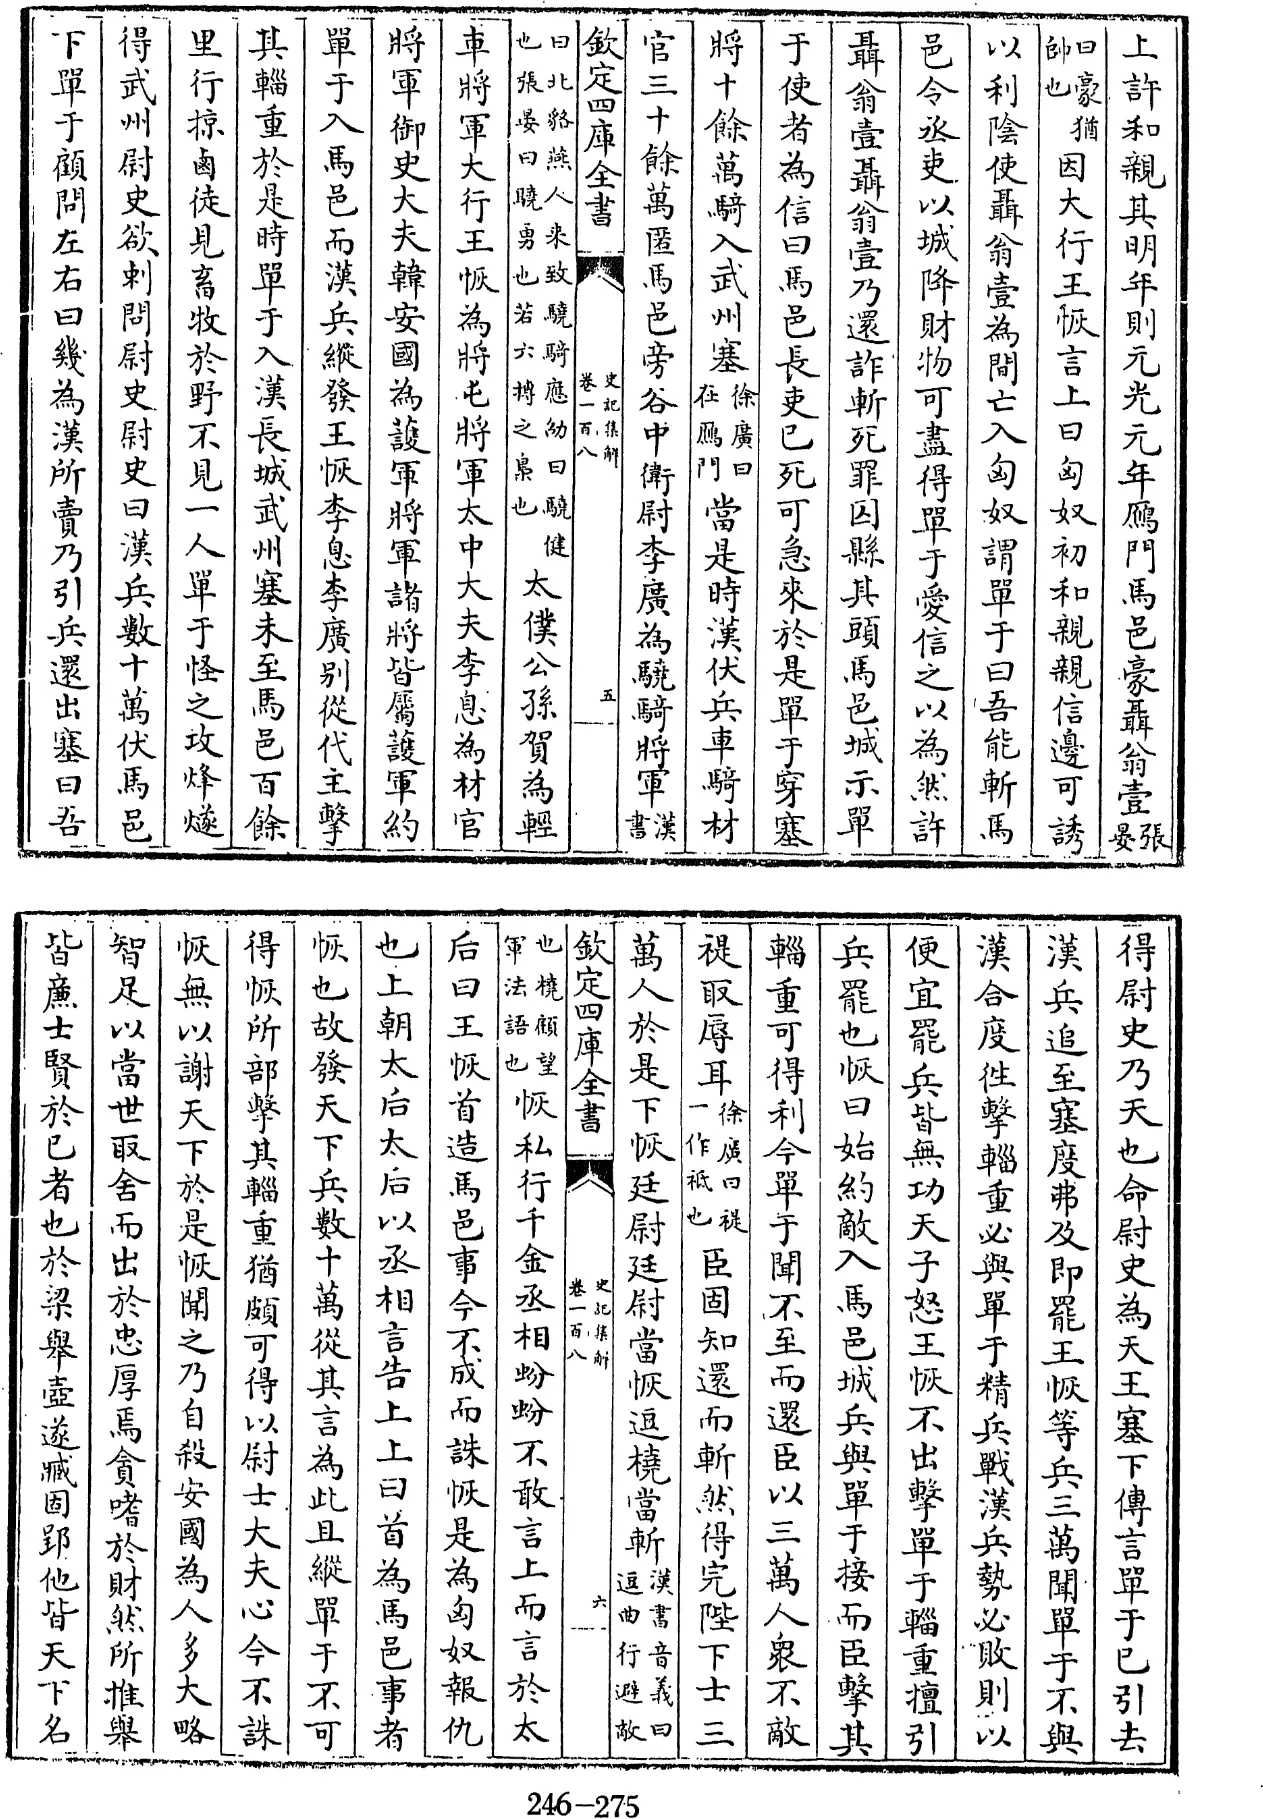 上許和親其明年則元光元年鴈門馬邑豪聶翁壹張晏
曰豪猶帥也因大行王恢言上曰匈奴初和親親信邊可誘
以利陰使聶翁壹為間亡入匈奴謂單于曰吾能斬馬
邑令丞吏以城降財物可盡得單于愛信之以為然許
聶翁壹聶翁壹乃還詐斬死罪囚縣其頭馬邑城示單
于使者為信曰馬邑長吏已死可急來於是單于穿塞
將十餘萬騎入武州塞徐廣曰在鴈門當是時漢伏兵車騎材
官三十餘萬匿馬邑旁谷中衛尉李廣為驍騎將軍漢書
欽定四庫全書 史記集解 卷一百八 五
曰北貉燕人來致驍騎應劭曰驍健也張晏曰驍勇也若六博之梟也太僕公孫賀為輕
車將軍大行王恢為將屯將軍太中大夫李息為材官
將軍御史大夫韓安國為護軍將軍諸將皆屬護軍約
單于入馬邑而漢兵縱發王恢李息李廣別從代主擊
其輜重於是時單于入漢長城武州塞未至馬邑百餘
里行掠鹵徒見畜牧於野不見一人單于怪之攻烽燧
得武州尉史欲刺問尉史尉史曰漢兵數十萬伏馬邑
下單于顧問左右曰幾為漢所賣乃引兵還出塞曰吾
得尉史乃天也命尉史為天王塞下傳言單于已引去
漢兵追至塞度弗及即罷王恢等兵三萬聞單于不與
漢合度往擊輜重必與單于精兵戰漢兵勢必敗則以
便宜罷兵皆無功天子怒王恢不出擊單于輜重擅引
兵罷也恢曰始約敵入馬邑城兵與單于接而臣擊其
輜重可得利今單于聞不至而還臣以三萬人衆不敵
禔取辱耳徐廣曰禔一作祇也臣固知還而斬然得完陛下士三
萬人於是下恢廷尉廷尉當恢逗橈當斬漢書音義曰逗曲行避敵
欽定四庫全書 史記集解 卷一百八 六
也橈顧望軍法語也恢私行千金丞相蚡蚡不敢言上而言於太
后曰王恢首造馬邑事今不成而誅恢是為匈奴報仇
也上朝太后太后以丞相言告上上曰首為馬邑事者
恢也故發天下兵數十萬從其言為此且縱單于不可
得恢所部擊其輜重猶頗可得以尉士大夫心今不誅
恢無以謝天下於是恢聞之乃自殺安國為人多大略
智足以當世取舍而出於忠厚焉貪嗜於財然所推舉
皆廉士賢於已者也於梁舉壺遂臧固郅他皆天下名
246-275